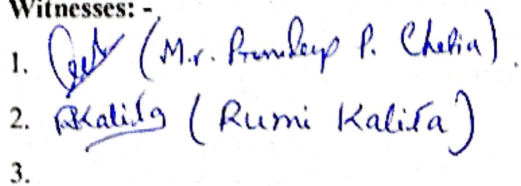 Witnesses: -
1. (Mr. P. Chetia)
2. RKalita (Rumi Kalita)
3.